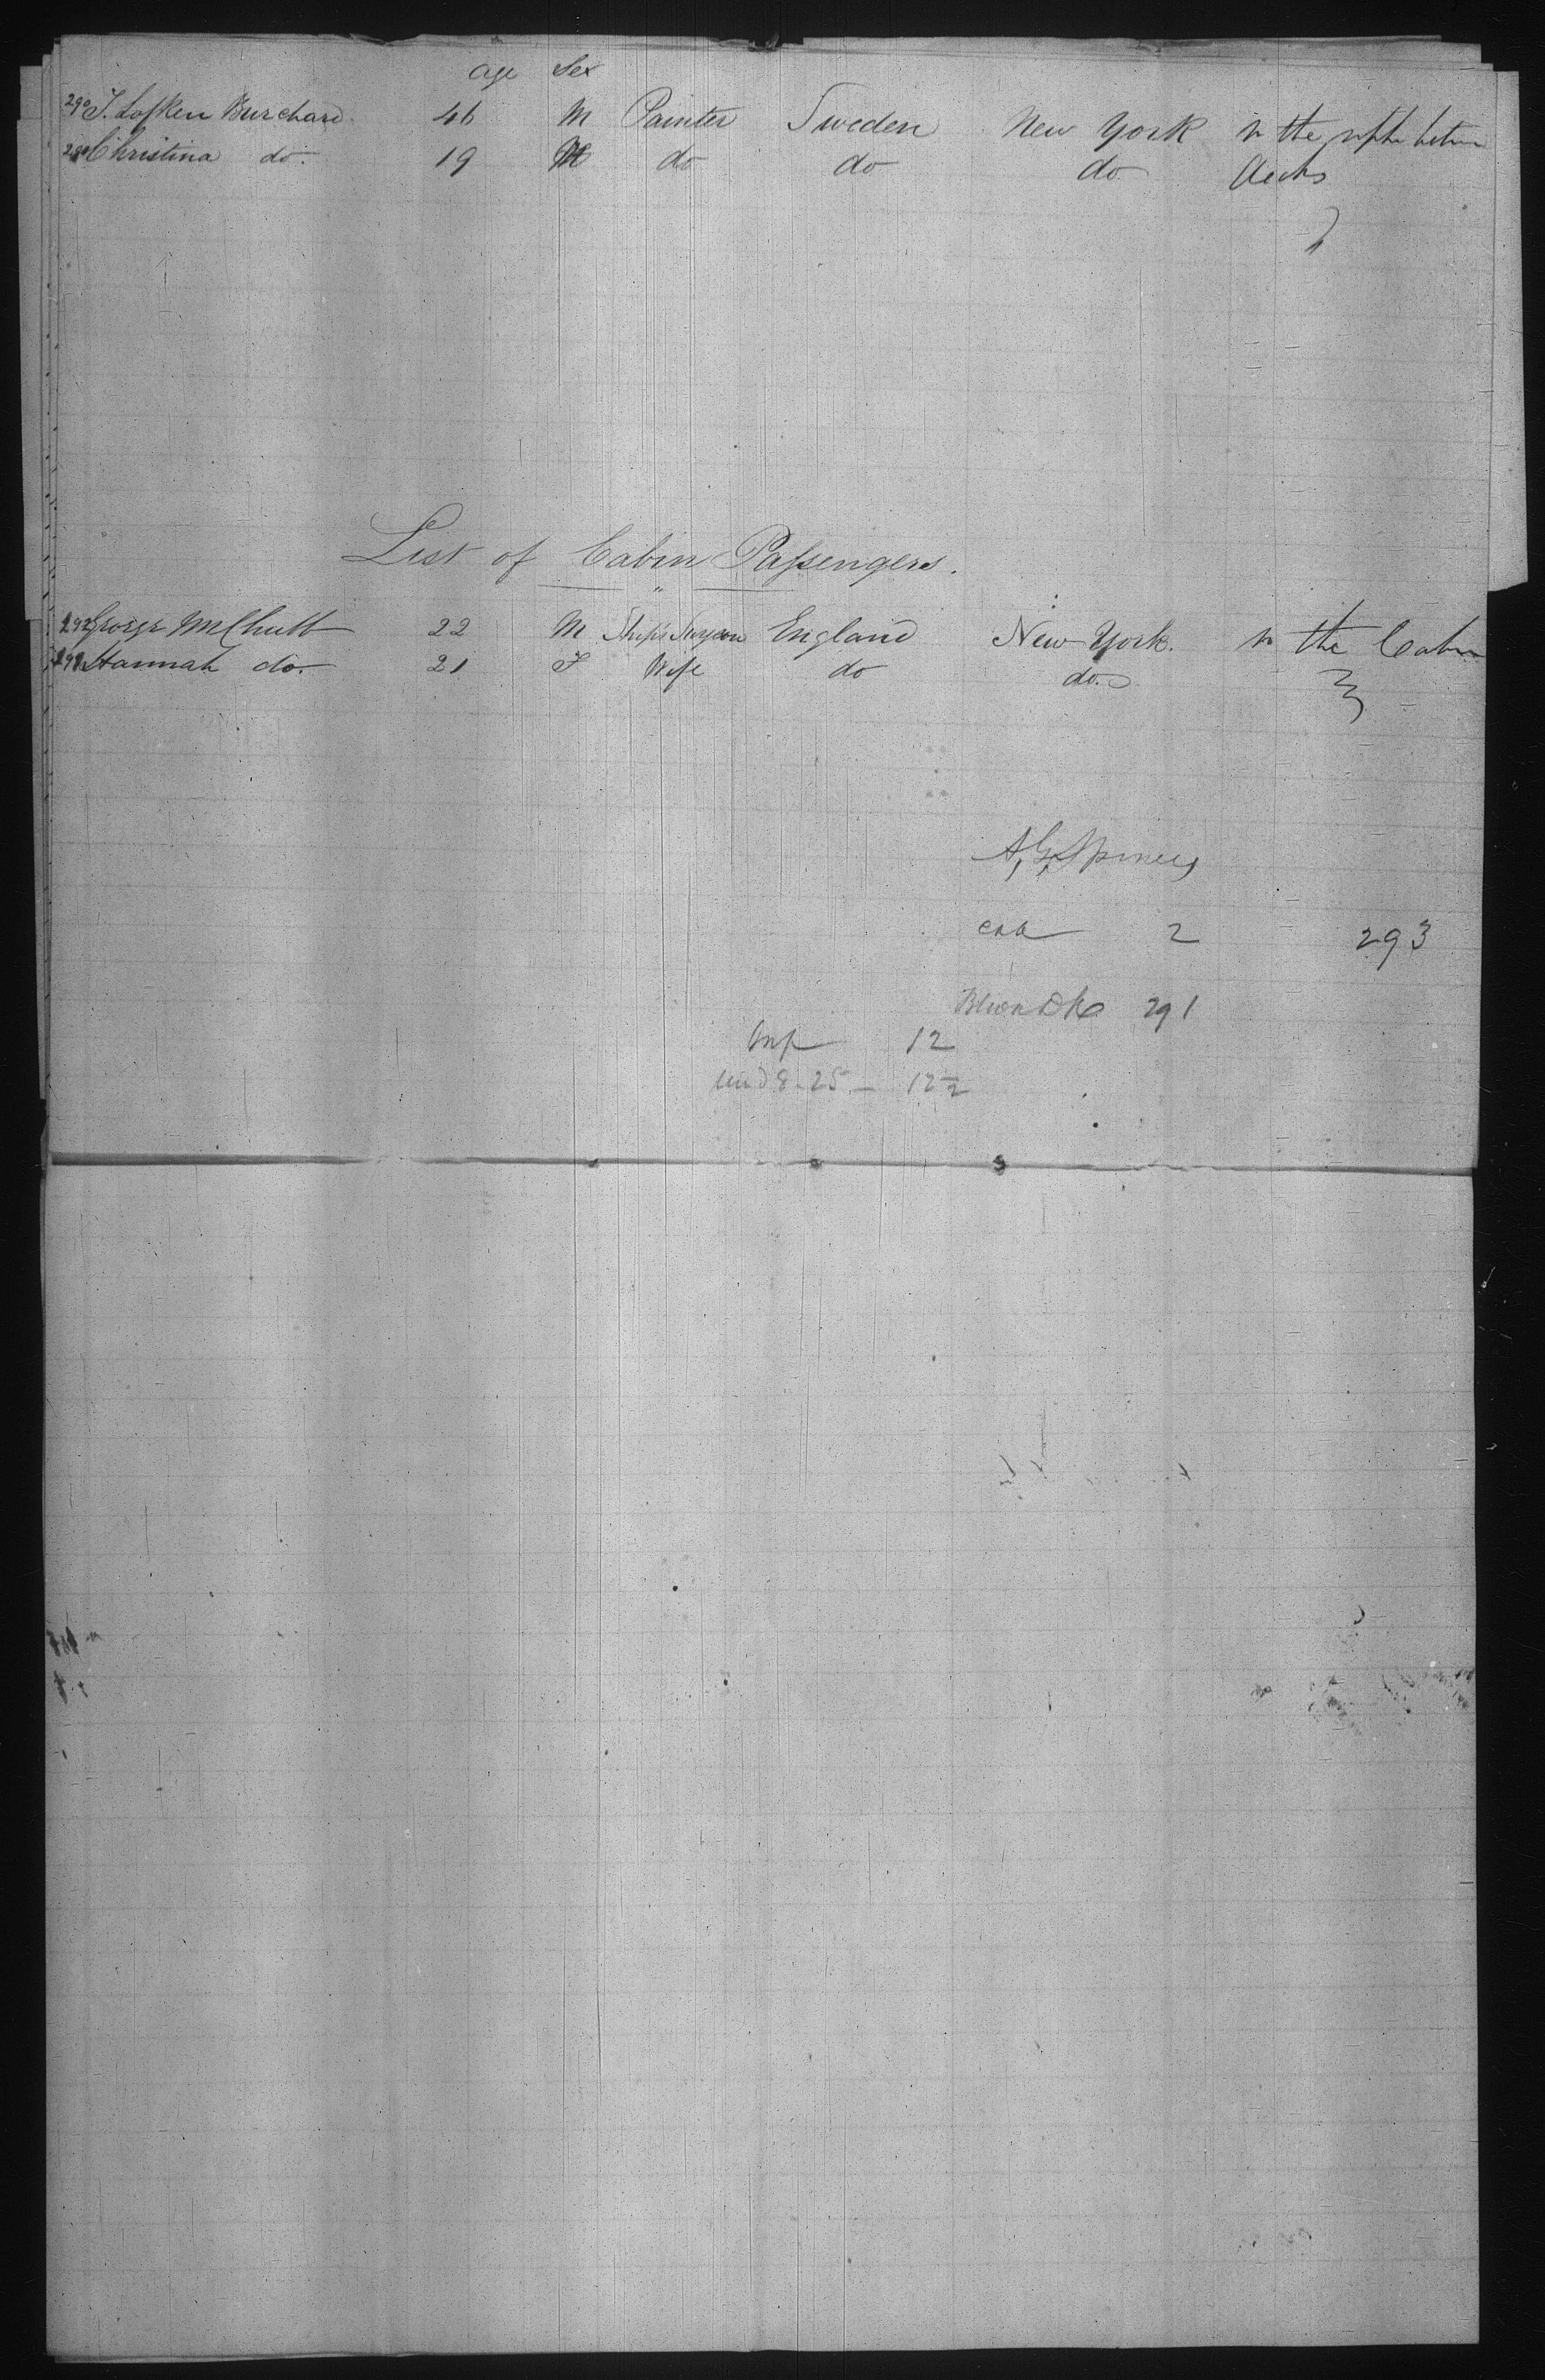 Age Sex
290 J. Lofken Burchard 46 M Painter Sweden New York in the upper between
Christina do. 19 M do do do decks
List of Cabin Passengers.
292 George McChutt 22 M Ship's Surgeon England New York. in the Cabin
Hannah do. 21 F Wife do do.
A. G. Spinney
Cab 2 293
291
Inf 12
und 8-25 - 122